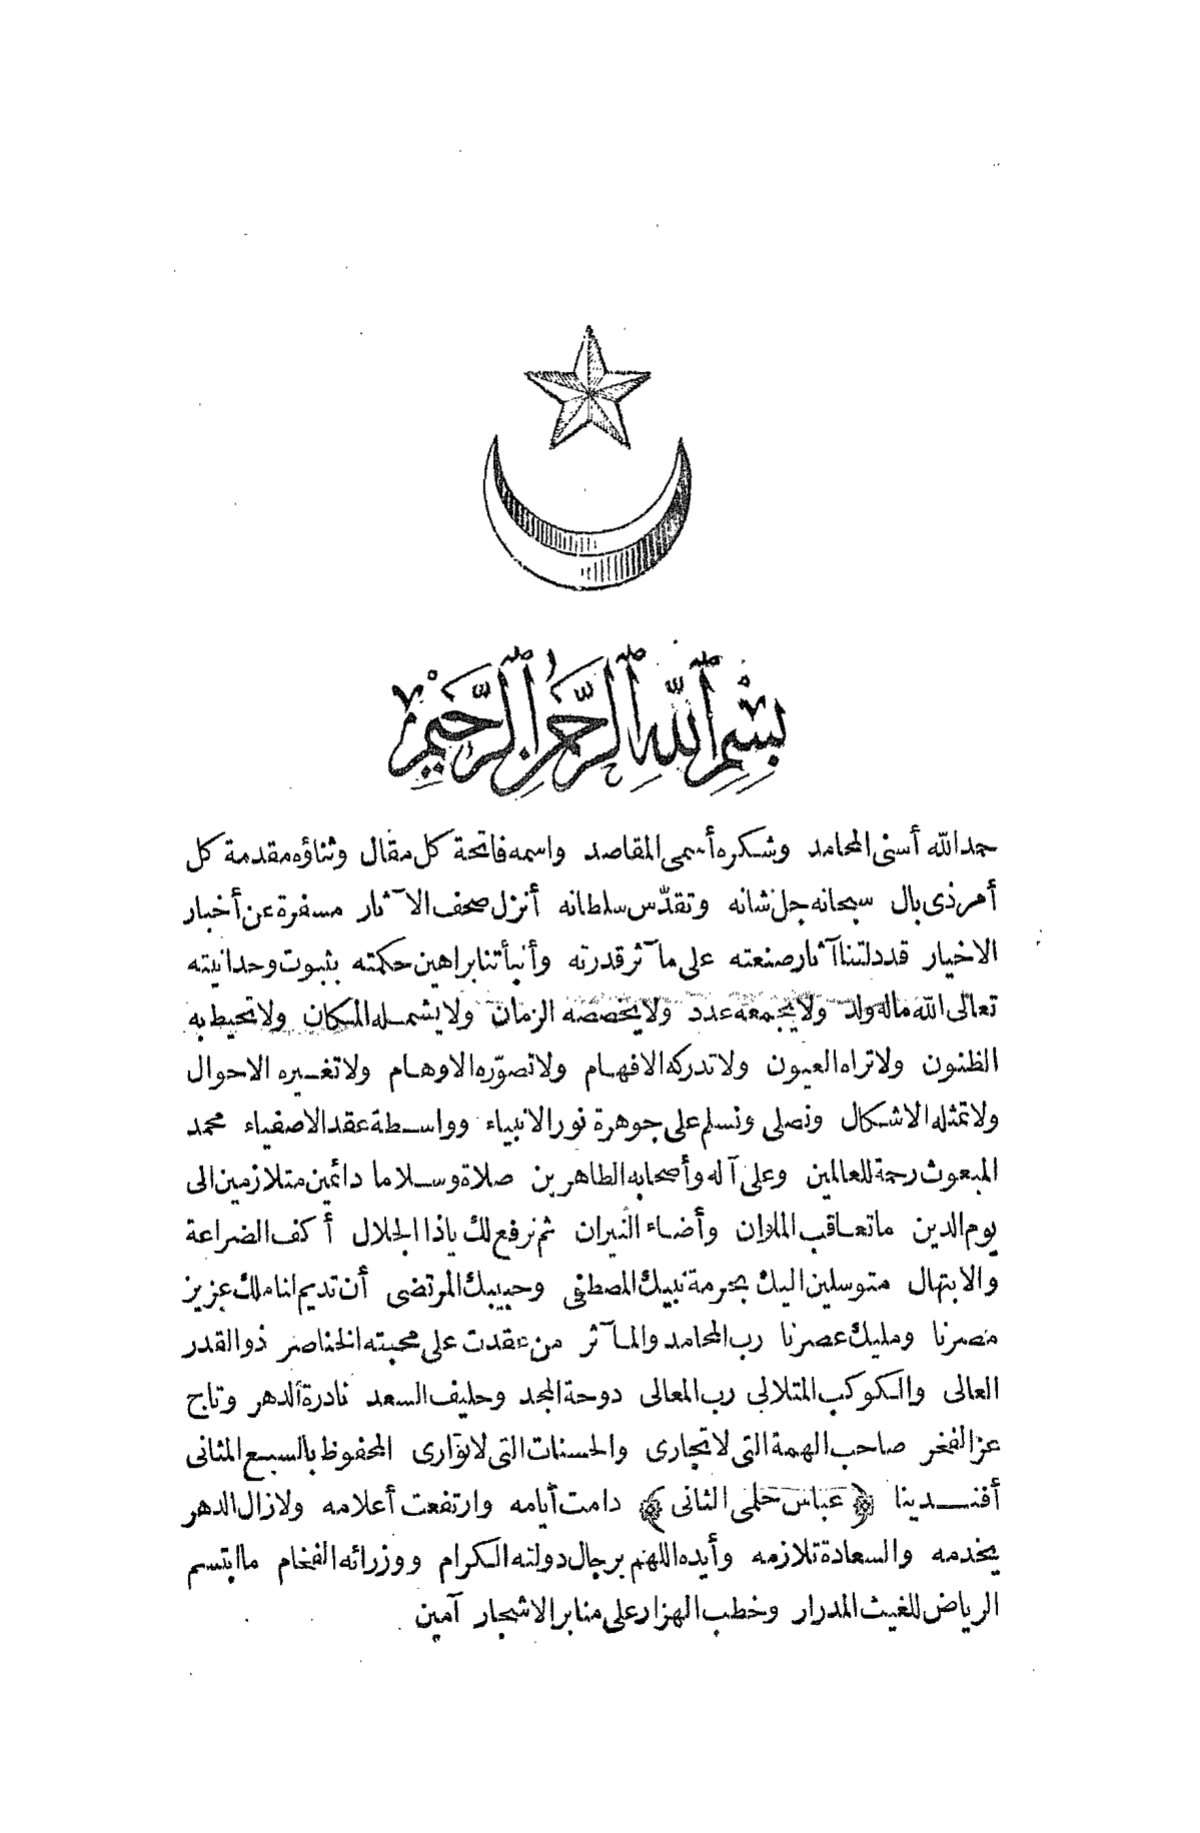 بِسْمِ ٱللَّهِ ٱلرَّحْمٰنِ ٱلرَّحِيمِ
حمدالله أسنى المحامد وشكره أسمى المقاصد واسمه فاتحة كل مقال وثناؤه مقدمة كل
أمر ذى بال سبحانه جل شانه وتقدّس سلطانه أنزل صحف الآثار مسفرة عن أخبار
الاخيار قد دلتنا آثار صنعته على مآثر قدرته وأنبأتنا براهين حكمته بثبوت وحدانيته
تعالى الله ماله ولد ولا يجمعه عدد ولا يخصصه الزمان ولا يشمله المكان ولا تحيط به
الظنون ولا تراه العيون ولا تدركه الافهام ولا تصوّره الاوهام ولا تغيره الاحوال
ولا تمثله الاشكال ونصلى ونسلم على جوهرة نور الانبياء وواسطة عقد الاصفياء محمد
المبعوث رحمة للعالمين وعلى آله وأصحابه الطاهرين صلاة وسلاما دائمين متلازمين الى
يوم الدين ما تعاقب الملوان وأضاء النيران ثم نرفع لك ياذا الجلال أكف الضراعة
والابتهال متوسلين اليك بحرمة نبيك المصطفى وحبيبك المرتضى أن تديم لنا ملك عزيز
مصرنا ومليك عصرنا رب المحامد والمآثر من عقدت على محبته الخناصر ذو القدر
العالى والكوكب المتلالى رب المعالى دوحة المجد وحليف السعد نادرة الدهر وتاج
عز الفخر صاحب الهمة التى لا تجارى والحسنات التى لا توارى المحفوظ بالسبع المثانى
أفندينا ﴿عباس حلمى الثانى﴾ دامت أيامه وارتفعت أعلامه ولازال الدهر
يخدمه والسعادة تلازمه وأيده اللهم برجال دولته الكرام ووزرائه الفخام ما ابتسم
الرياض للغيث المدرار وخطب الهزار على منابر الاشجار آمين